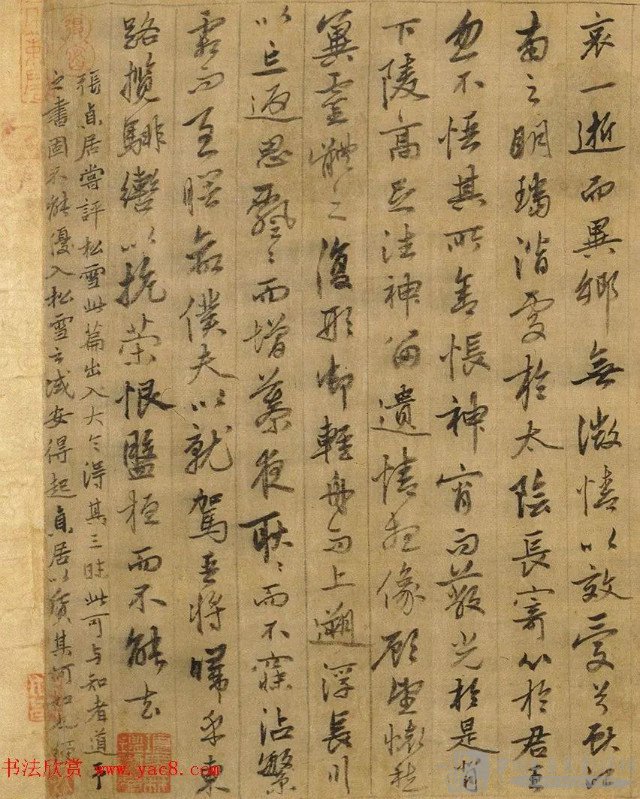 哀一逝而異鄉無微情以效愛兮獻江
南之明璫潛處於太陰長寄心於君王
忽不悟其所舍悵神宵而蔽光於是背
下陵高足往神留遺情想像顧望懷愁
冀靈體之復形御輕舟而上遡浮長川
以忘返思飄〻而增慕夜耿〻而不寐沾繁
霜而至曙命僕夫以就駕吾將歸乎東
路攬騑轡以抗策恨盤桓而不能去
張貞居嘗評松雪此篇出入大令得其三昧此可与知者道予
之書固不能優入松雪之域安得起貞居以質其何如也
书法欣赏 www.yac8.com